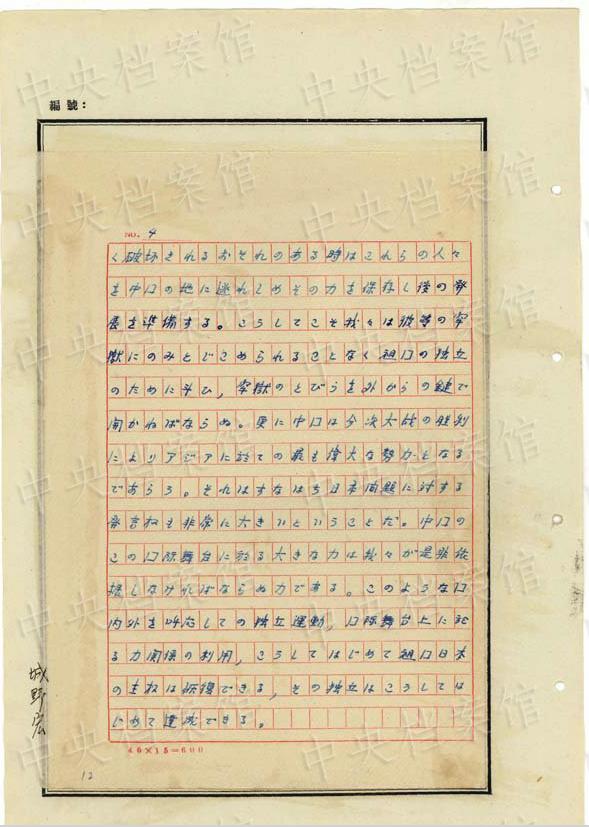 編號：
NO. 4
く破坏されるおそれのある時はこれらの人々
を中口の地に逃れしめその力を保存し後の発
展を準備する。こうしてこそ我々は彼等の牢
獄にのみとじこめられることなく祖口の独立
のために斗ひ，牢獄のとびらを外からの鍵で
開かねばならぬ。更に中口は今次大战の胜利
によりアジアに於ての最も偉大な努力となる
であらう。それはすなはち日本問題に対する
発言权も非常に大きいということだ。中口の
この口际舞台に於る大きな力は我々が是非依
据しなければならぬ力である。このような口
内外を呼応しての独立運動，口际舞台上に於
る力関係の利用，こうしてはじめて祖口日本
の主权は恢復できる，その独立はこうしては
じめて達成できる。
40×15=600
城野宏
12
中央档案馆